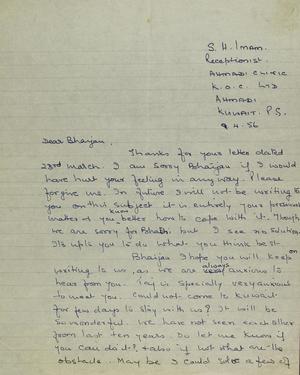 S. H. Imam.
Receptionist.
AHMADI CLINIC
K. O. C. LTD
AHMADI
KUWAIT. P.G.
9.4.56
Dear Bhaijan,
Thanks for your letter dated
23rd march. I am sorry Bhaijan if I would
have hurt your feeling in any way. Please
forgive us. In future I will not be writing to
you on this subject it is entirely your personal
matter & you know better how to cope with it. Though
we are sorry for but I see no solution
Its upto you to do what you think best
Bhaijan I hope you will keep on
writing to us, as we are always anxious to
hear from you. Taj is specially very anxious
to meet you. Could not come to Kuwait
for few days to stay with us? It will be
So wonderful. We have not seen each other
from last ten years. Do let me know if
you can do it? & also if not what are the
obstacle. May be I could solve a few of